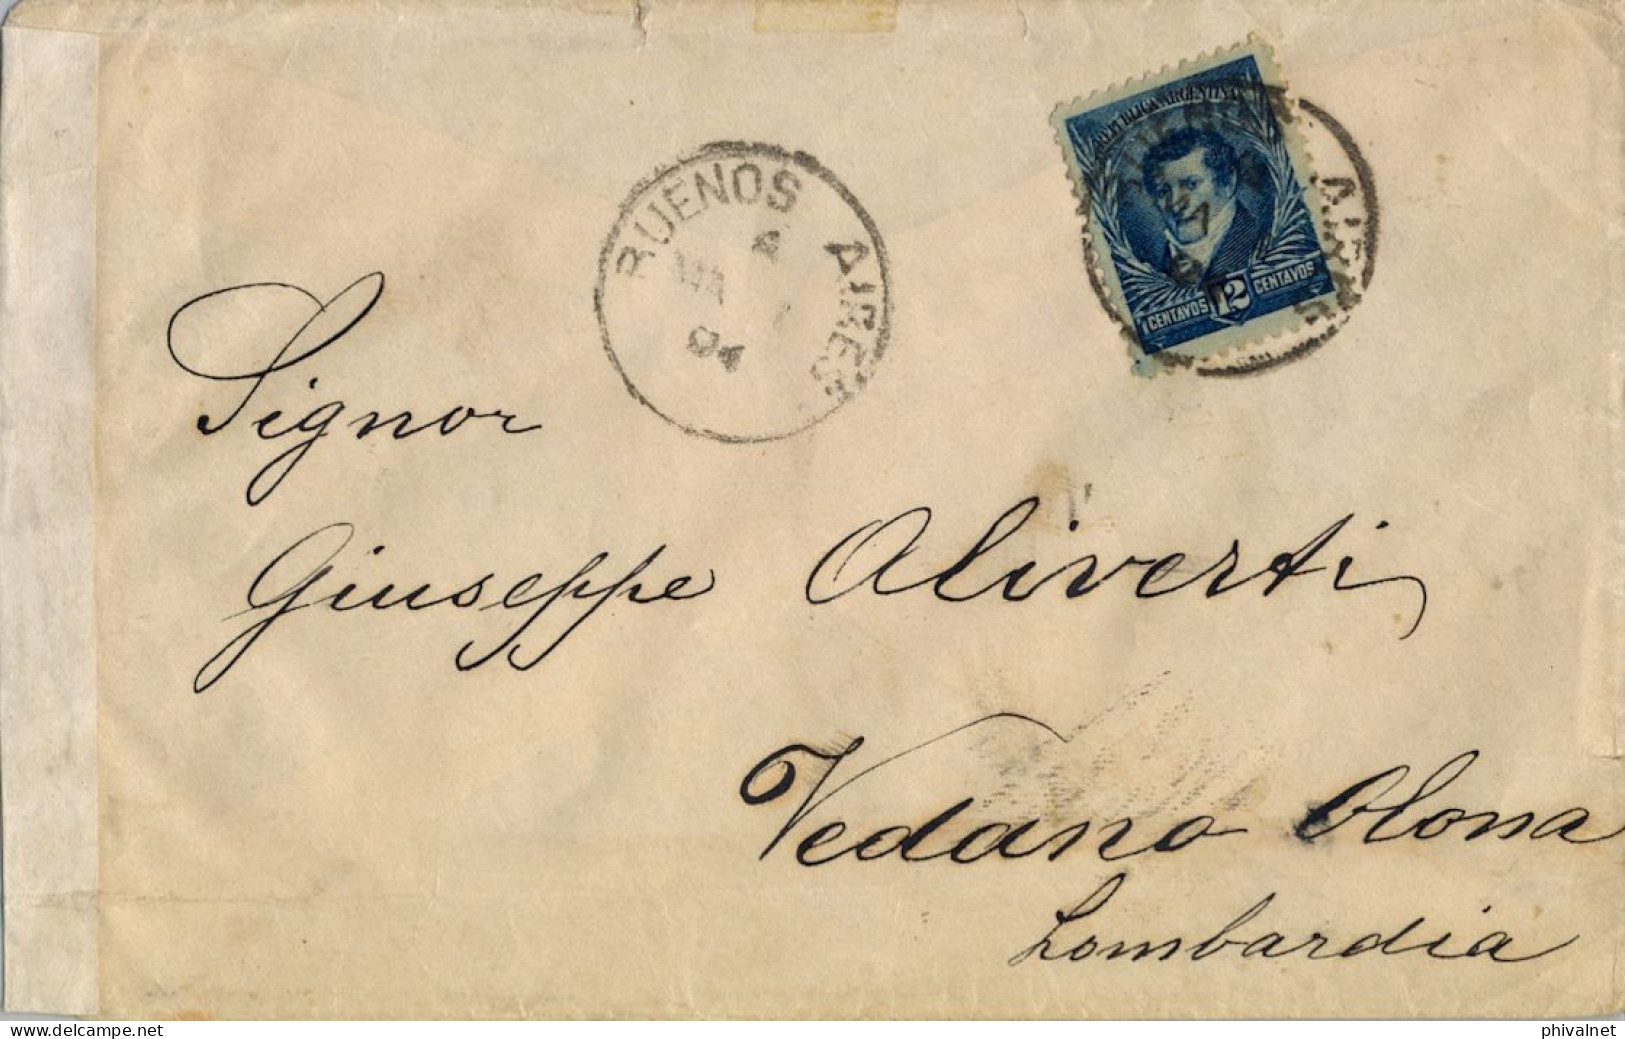 BUENOS AIRES
4
MA
04
REPUBLICA ARGENTINA
12
CENTAVOS CENTAVOS
AIRES
MA
Signor
Giuseppe Aliverti
Vedano Olona
Lombardia
delcampe.net
phivalnet